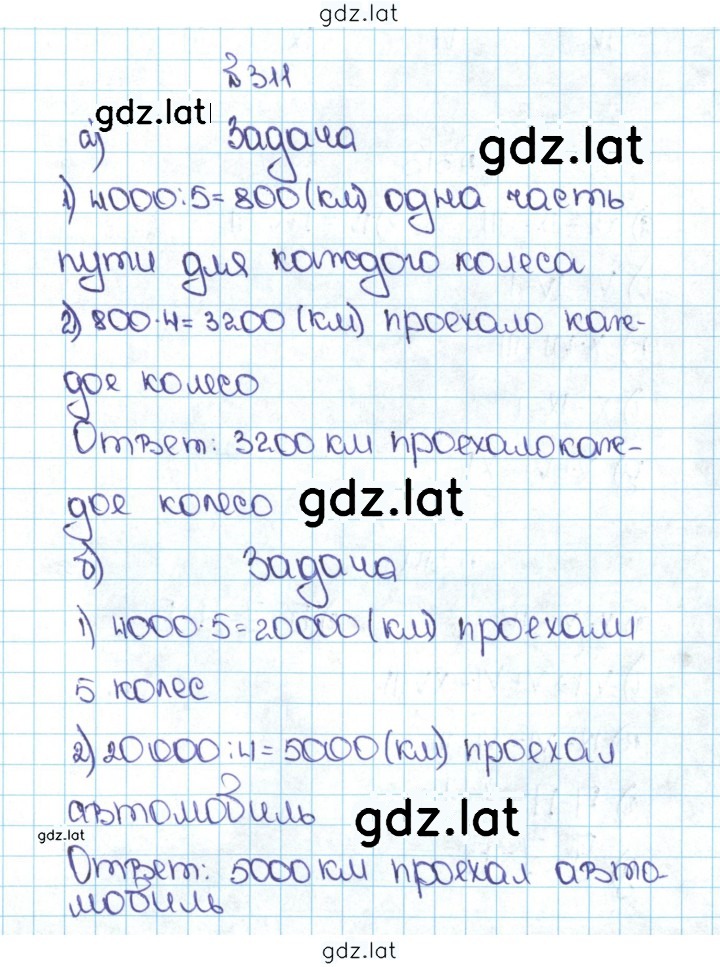 gdz.lat
№ 311
gdz.lat
а) Задача
gdz.lat
1) 4000:5=800(км) одна часть
пути для каждого колеса
2) 800·4=3200 (км) проехало каж-
дое колесо
Ответ: 3200 км проехало каж-
дое колесо
gdz.lat
б) Задача
1) 4000·5=20000(км) проехали
5 колес
2) 20000:4=5000(км) проехал
автомобиль
gdz.lat
gdz.lat
Ответ: 5000 км проехал авто-
мобиль
gdz.lat